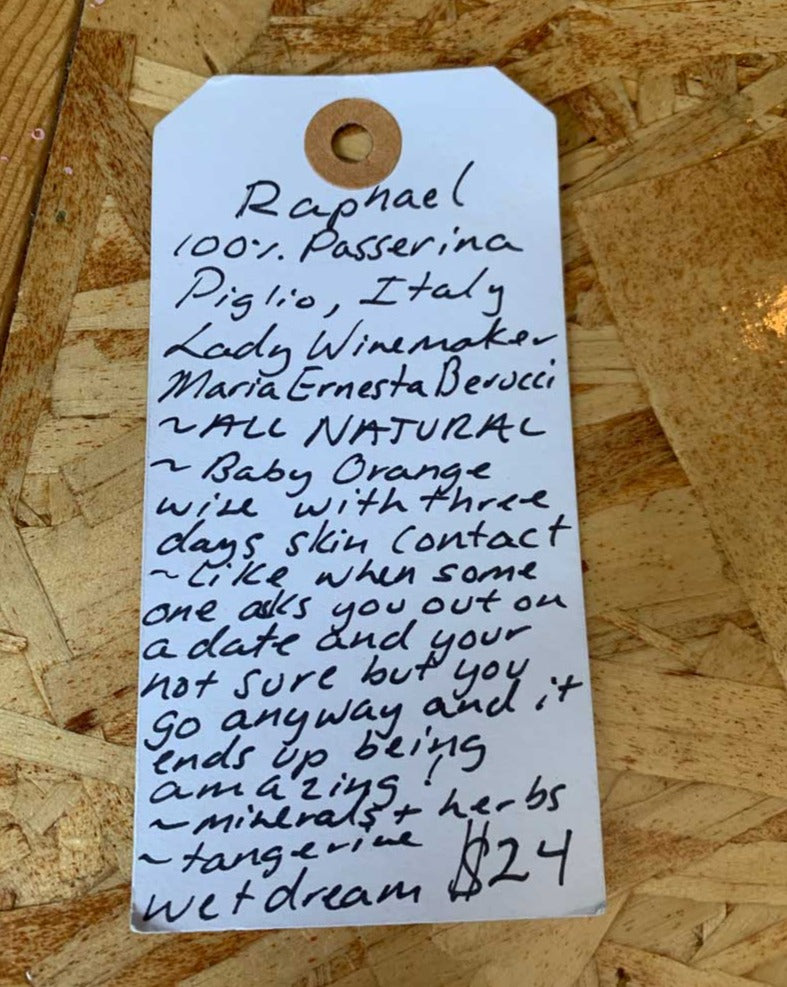 Raphael
100%. Passerina
Piglio, Italy
Lady Winemaker
Maria Ernesta Berucci
~ALL NATURAL
~Baby Orange
wine with three
days skin contact
~Like when some
one asks you out on
a date and your
not sure but you
go anyway and it
ends up being
amazing!
~minerals + herbs
~tangerine
wet dream $24